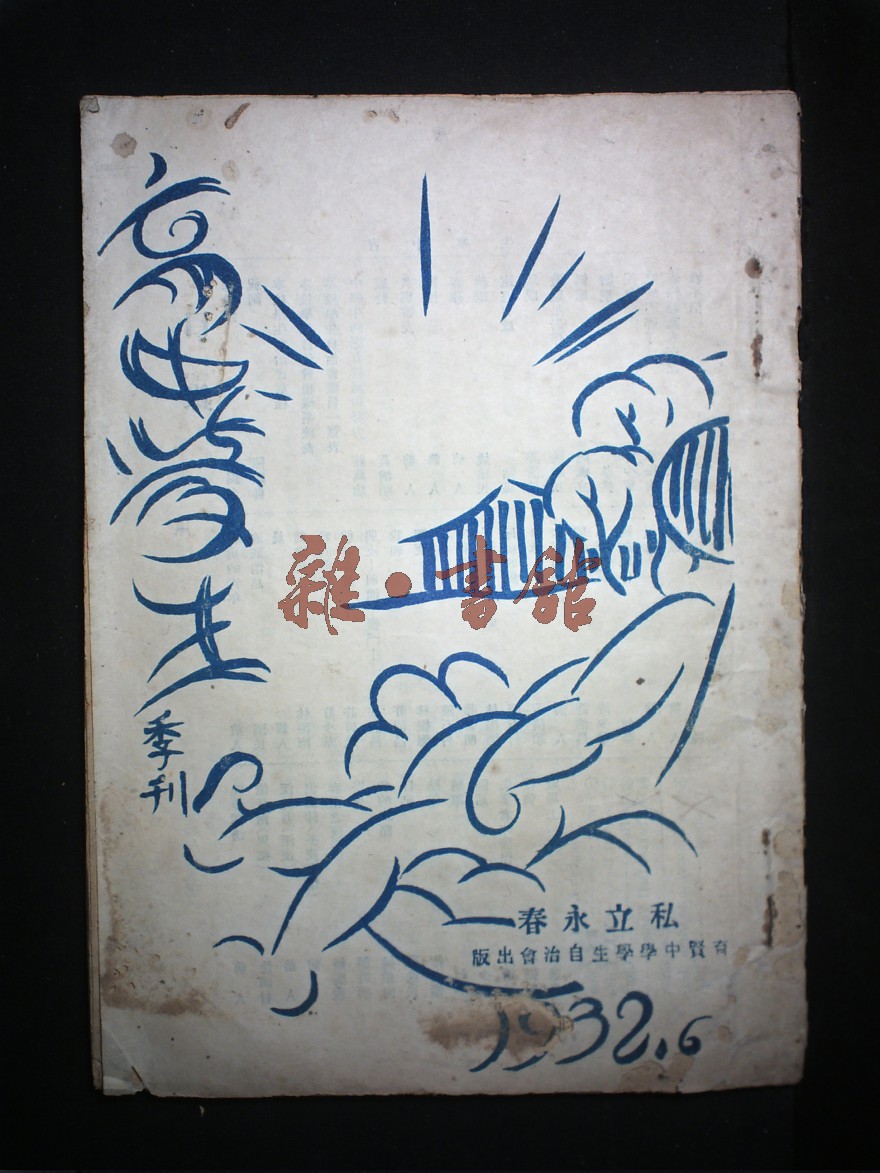 育中學生
季刊
雜·書館
私立永春
育賢中學學生自治會出版
1932.6